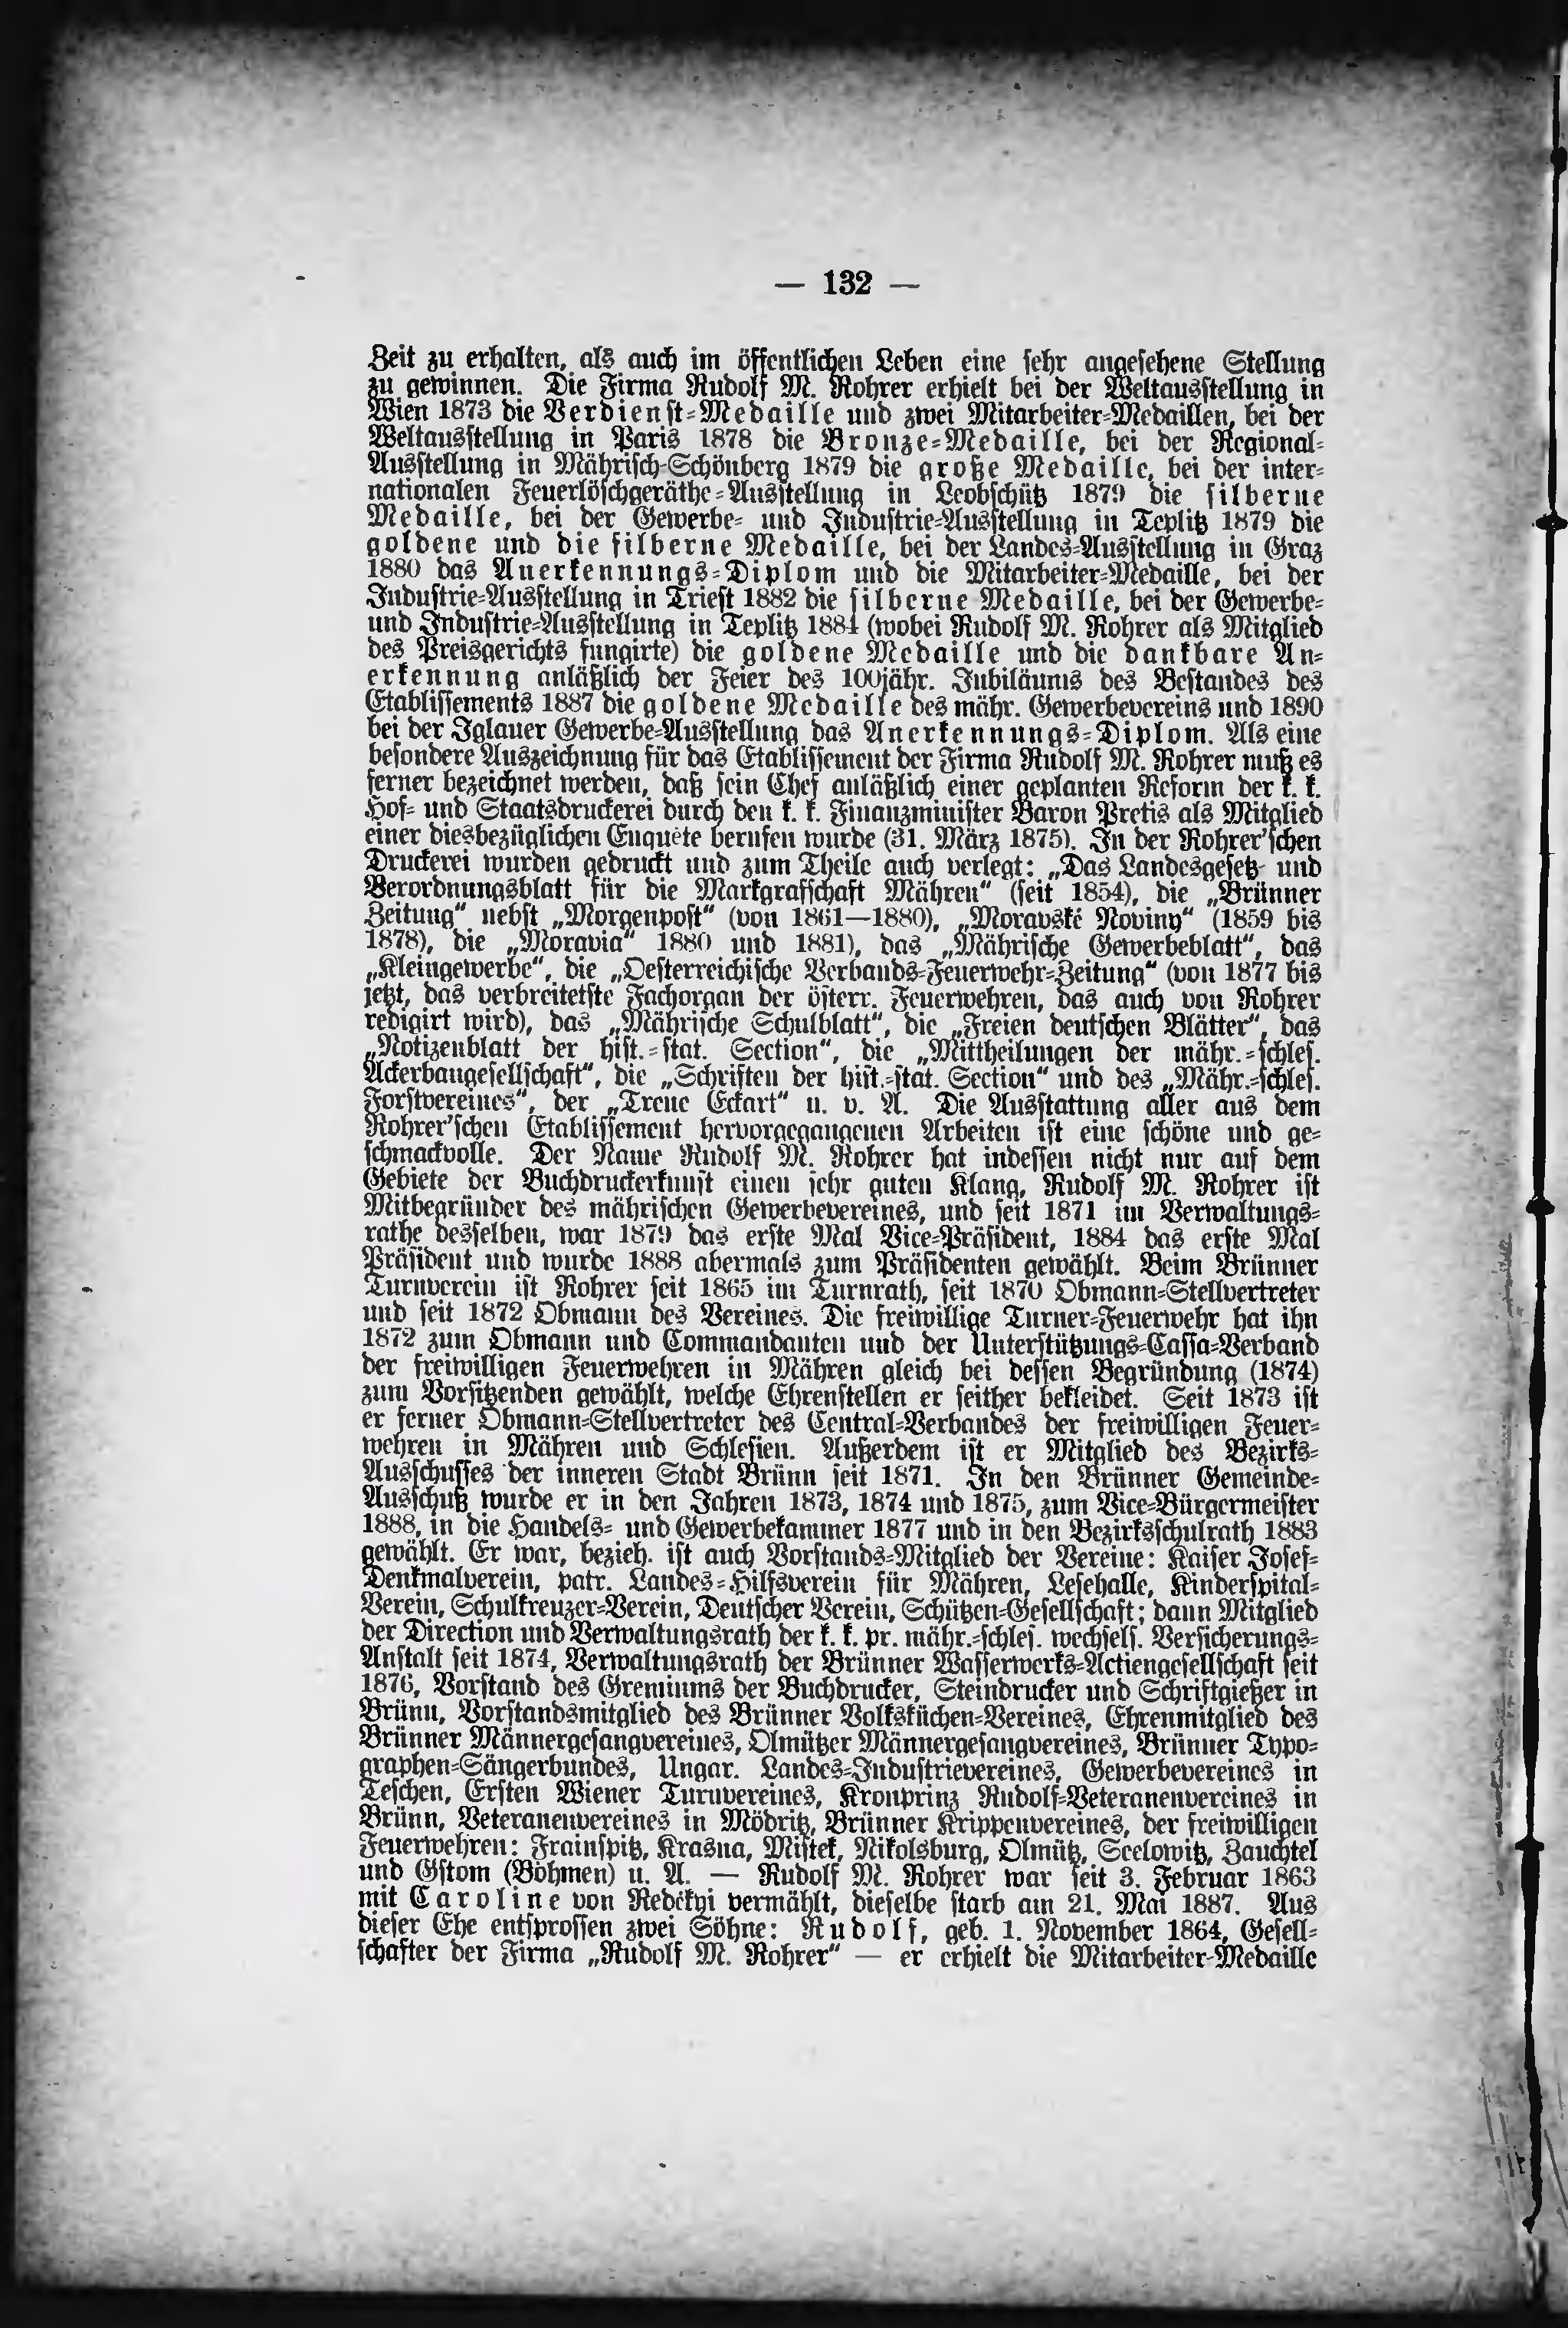 — 132 —
Zeit zu erhalten, als auch im öffentlichen Leben eine sehr angesehene Stellung
zu gewinnen. Die Firma Rudolf M. Rohrer erhielt bei der Weltausstellung in
Wien 1873 die Verdienst-Medaille und zwei Mitarbeiter-Medaillen, bei der
Weltausstellung in Paris 1878 die Bronze-Medaille, bei der Regional-
Ausstellung in Mährisch-Schönberg 1879 die große Medaille, bei der inter-
nationalen Feuerlöschgeräthe-Ausstellung in Leobschütz 1879 die silberne
Medaille, bei der Gewerbe- und Industrie-Ausstellung in Teplitz 1879 die
goldene und die silberne Medaille, bei der Landes-Ausstellung in Graz
1880 das Anerkennungs-Diplom und die Mitarbeiter-Medaille, bei der
Industrie-Ausstellung in Triest 1882 die silberne Medaille, bei der Gewerbe-
und Industrie-Ausstellung in Teplitz 1884 (wobei Rudolf M. Rohrer als Mitglied
des Preisgerichts fungirte) die goldene Medaille und die dankbare An-
erkennung anläßlich der Feier des 100jähr. Jubiläums des Bestandes des
Etablissements 1887 die goldene Medaille des mähr. Gewerbevereins und 1890
bei der Iglauer Gewerbe-Ausstellung das Anerkennungs-Diplom. Als eine
besondere Auszeichnung für das Etablissement der Firma Rudolf M. Rohrer muß es
ferner bezeichnet werden, daß sein Chef anläßlich einer geplanten Reform der k. k.
Hof- und Staatsdruckerei durch den k. k. Finanzminister Baron Pretis als Mitglied
einer diesbezüglichen Enquête berufen wurde (31. März 1875). In der Rohrer'schen
Druckerei wurden gedruckt und zum Theile auch verlegt: „Das Landesgesetz- und
Verordnungsblatt für die Markgrafschaft Mähren“ (seit 1854), die „Brünner
Zeitung“ nebst „Morgenpost“ (von 1861—1880), „Moravské Noviny“ (1859 bis
1878), die „Moravia“ 1880 und 1881), das „Mährische Gewerbeblatt“, das
„Kleingewerbe“, die „Oesterreichische Verbands-Feuerwehr-Zeitung“ (von 1877 bis
jetzt, das verbreitetste Fachorgan der österr. Feuerwehren, das auch von Rohrer
redigirt wird), das „Mährische Schulblatt“, die „Freien deutschen Blätter“, das
„Notizenblatt der hist.-stat. Section“, die „Mittheilungen der mähr.-schles.
Ackerbaugesellschaft“, die „Schriften der hist.-stat. Section“ und des „Mähr.-schles.
Forstvereines“, der „Treue Eckart“ u. v. A. Die Ausstattung aller aus dem
Rohrer'schen Etablissement hervorgegangenen Arbeiten ist eine schöne und ge-
schmackvolle. Der Name Rudolf M. Rohrer hat indessen nicht nur auf dem
Gebiete der Buchdruckerkunst einen sehr guten Klang, Rudolf M. Rohrer ist
Mitbegründer des mährischen Gewerbevereines, und seit 1871 im Verwaltungs-
rathe desselben, war 1879 das erste Mal Vice-Präsident, 1884 das erste Mal
Präsident und wurde 1888 abermals zum Präsidenten gewählt. Beim Brünner
Turnverein ist Rohrer seit 1865 im Turnrath, seit 1870 Obmann-Stellvertreter
und seit 1872 Obmann des Vereines. Die freiwillige Turner-Feuerwehr hat ihn
1872 zum Obmann und Commandanten und der Unterstützungs-Cassa-Verband
der freiwilligen Feuerwehren in Mähren gleich bei dessen Begründung (1874)
zum Vorsitzenden gewählt, welche Ehrenstellen er seither bekleidet. Seit 1873 ist
er ferner Obmann-Stellvertreter des Central-Verbandes der freiwilligen Feuer-
wehren in Mähren und Schlesien. Außerdem ist er Mitglied des Bezirks-
Ausschusses der inneren Stadt Brünn seit 1871. In den Brünner Gemeinde-
Ausschuß wurde er in den Jahren 1873, 1874 und 1875, zum Vice-Bürgermeister
1888, in die Handels- und Gewerbekammer 1877 und in den Bezirksschulrath 1883
gewählt. Er war, bezieh. ist auch Vorstands-Mitglied der Vereine: Kaiser Josef-
Denkmalverein, patr. Landes-Hilfsverein für Mähren, Lesehalle, Kinderspital-
Verein, Schulkreuzer-Verein, Deutscher Verein, Schützen-Gesellschaft; dann Mitglied
der Direction und Verwaltungsrath der k. k. pr. mähr.-schles. wechsels. Versicherungs-
Anstalt seit 1874, Verwaltungsrath der Brünner Wasserwerks-Actiengesellschaft seit
1876, Vorstand des Gremiums der Buchdrucker, Steindrucker und Schriftgießer in
Brünn, Vorstandsmitglied des Brünner Volksküchen-Vereines, Ehrenmitglied des
Brünner Männergesangvereines, Olmützer Männergesangvereines, Brünner Typo-
graphen-Sängerbundes, Ungar. Landes-Industrievereines, Gewerbevereines in
Teschen, Ersten Wiener Turnvereines, Kronprinz Rudolf-Veteranenvereines in
Brünn, Veteranenvereines in Mödritz, Brünner Krippenvereines, der freiwilligen
Feuerwehren: Frainspitz, Krasna, Mistek, Nikolsburg, Olmütz, Seelowitz, Zauchtel
und Gstom (Böhmen) u. A. — Rudolf M. Rohrer war seit 3. Februar 1863
mit Caroline von vermählt, dieselbe starb am 21. Mai 1887. Aus
dieser Ehe entsprossen zwei Söhne: Rudolf, geb. 1. November 1864, Gesell-
schafter der Firma „Rudolf M. Rohrer“ — er erhielt die Mitarbeiter-Medaille